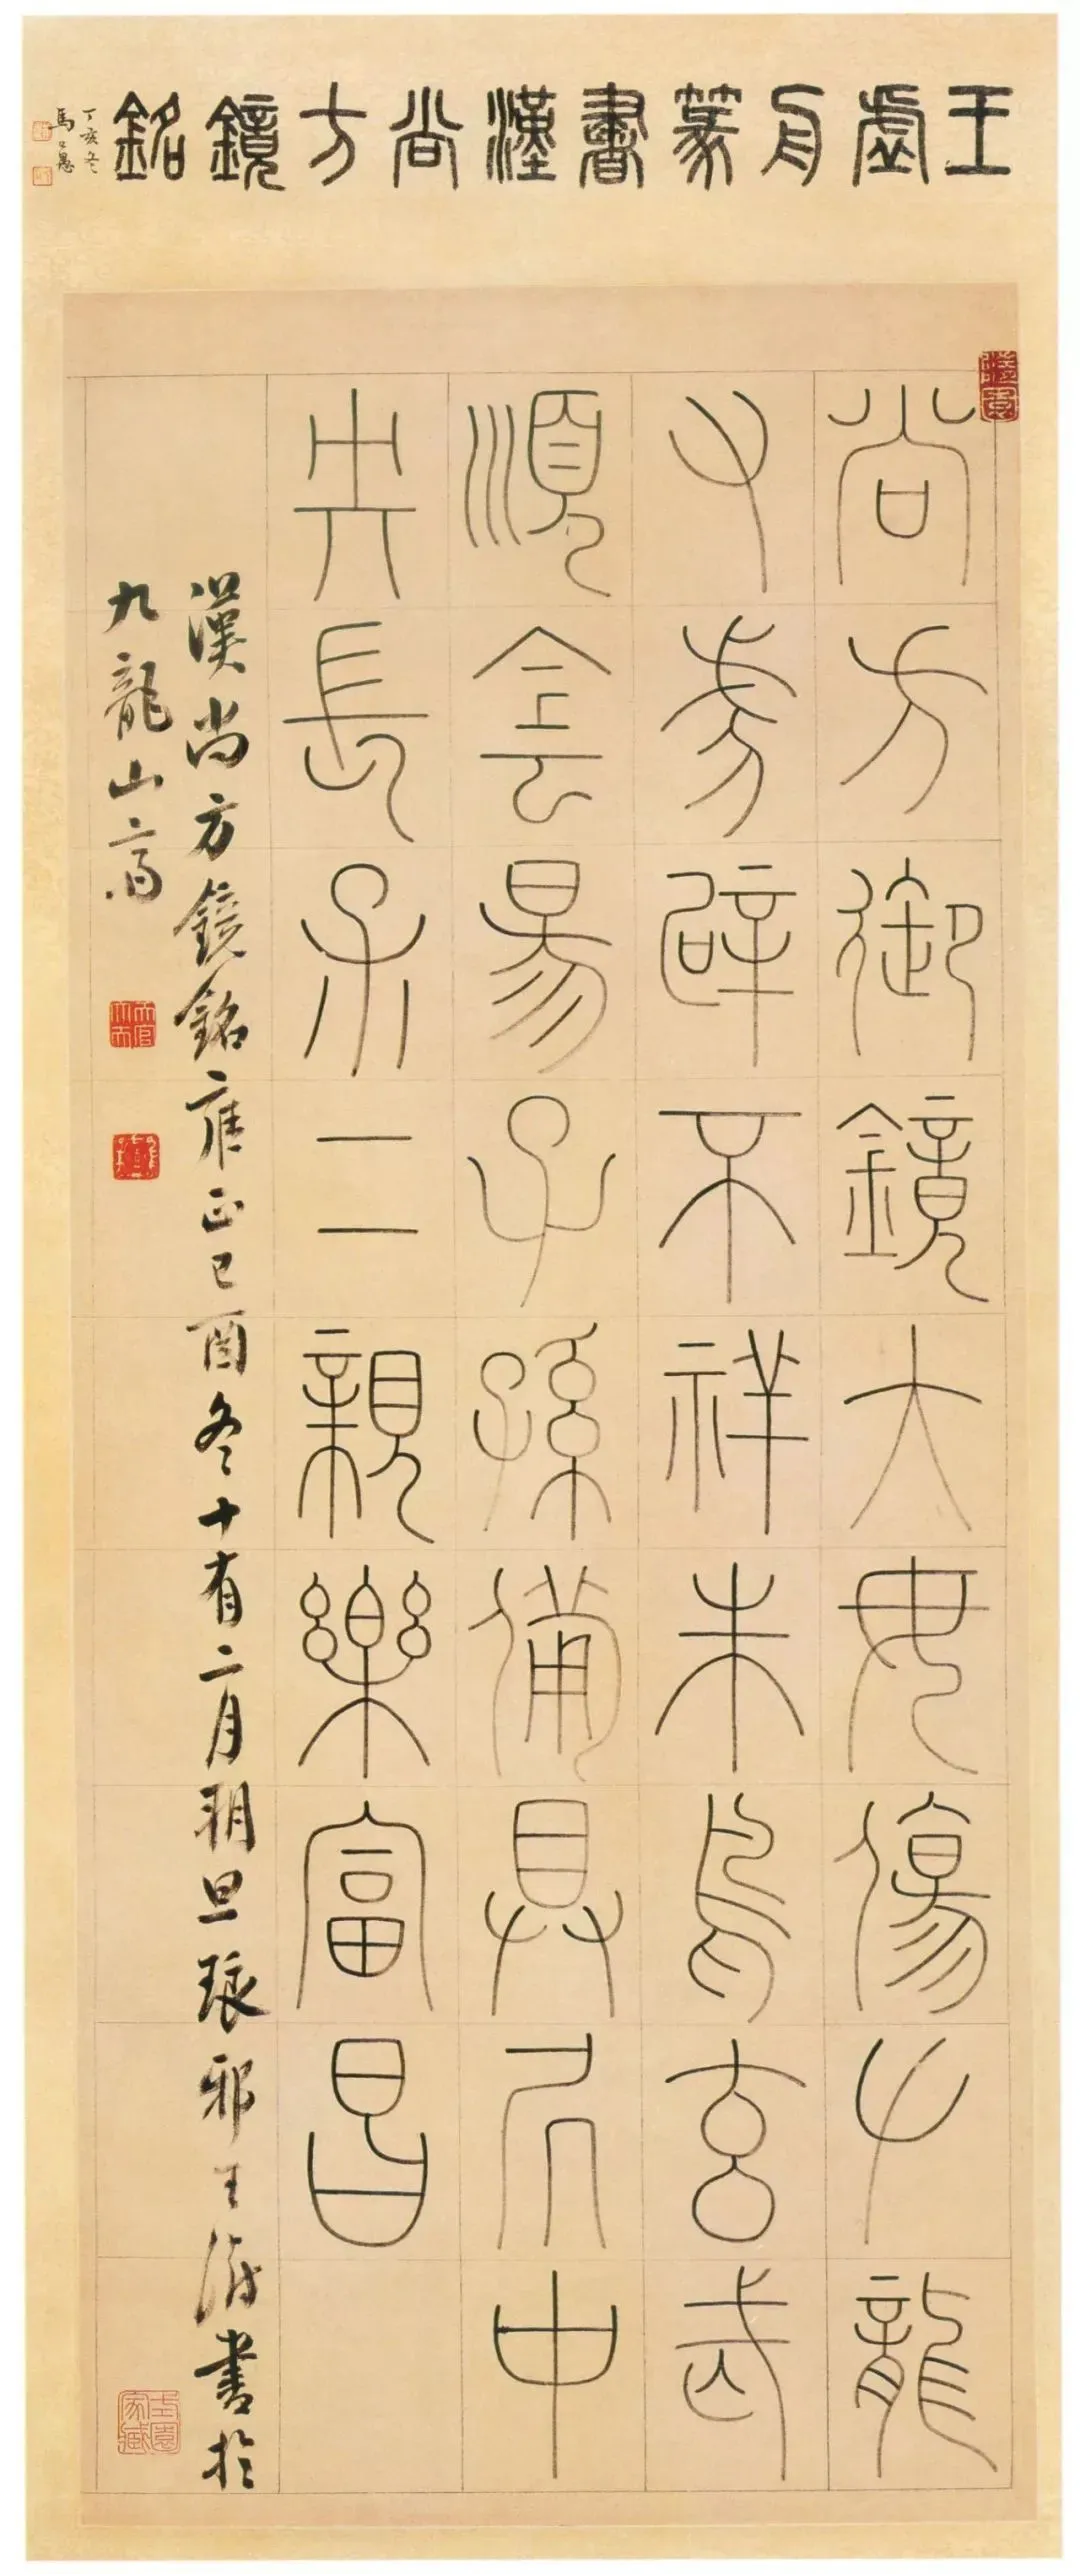 王虛舟篆書漢尚方鏡銘
丁亥冬
馬公愚
尚方御鏡大毋傷𠂇龍
又虎辟不祥朱鳥玄武
順侌昜子孫備具凥中
央長保二親樂富昌
漢尚方鏡銘雍正己酉冬十有二月朔旦琅邪王澍書於
九龍山齋